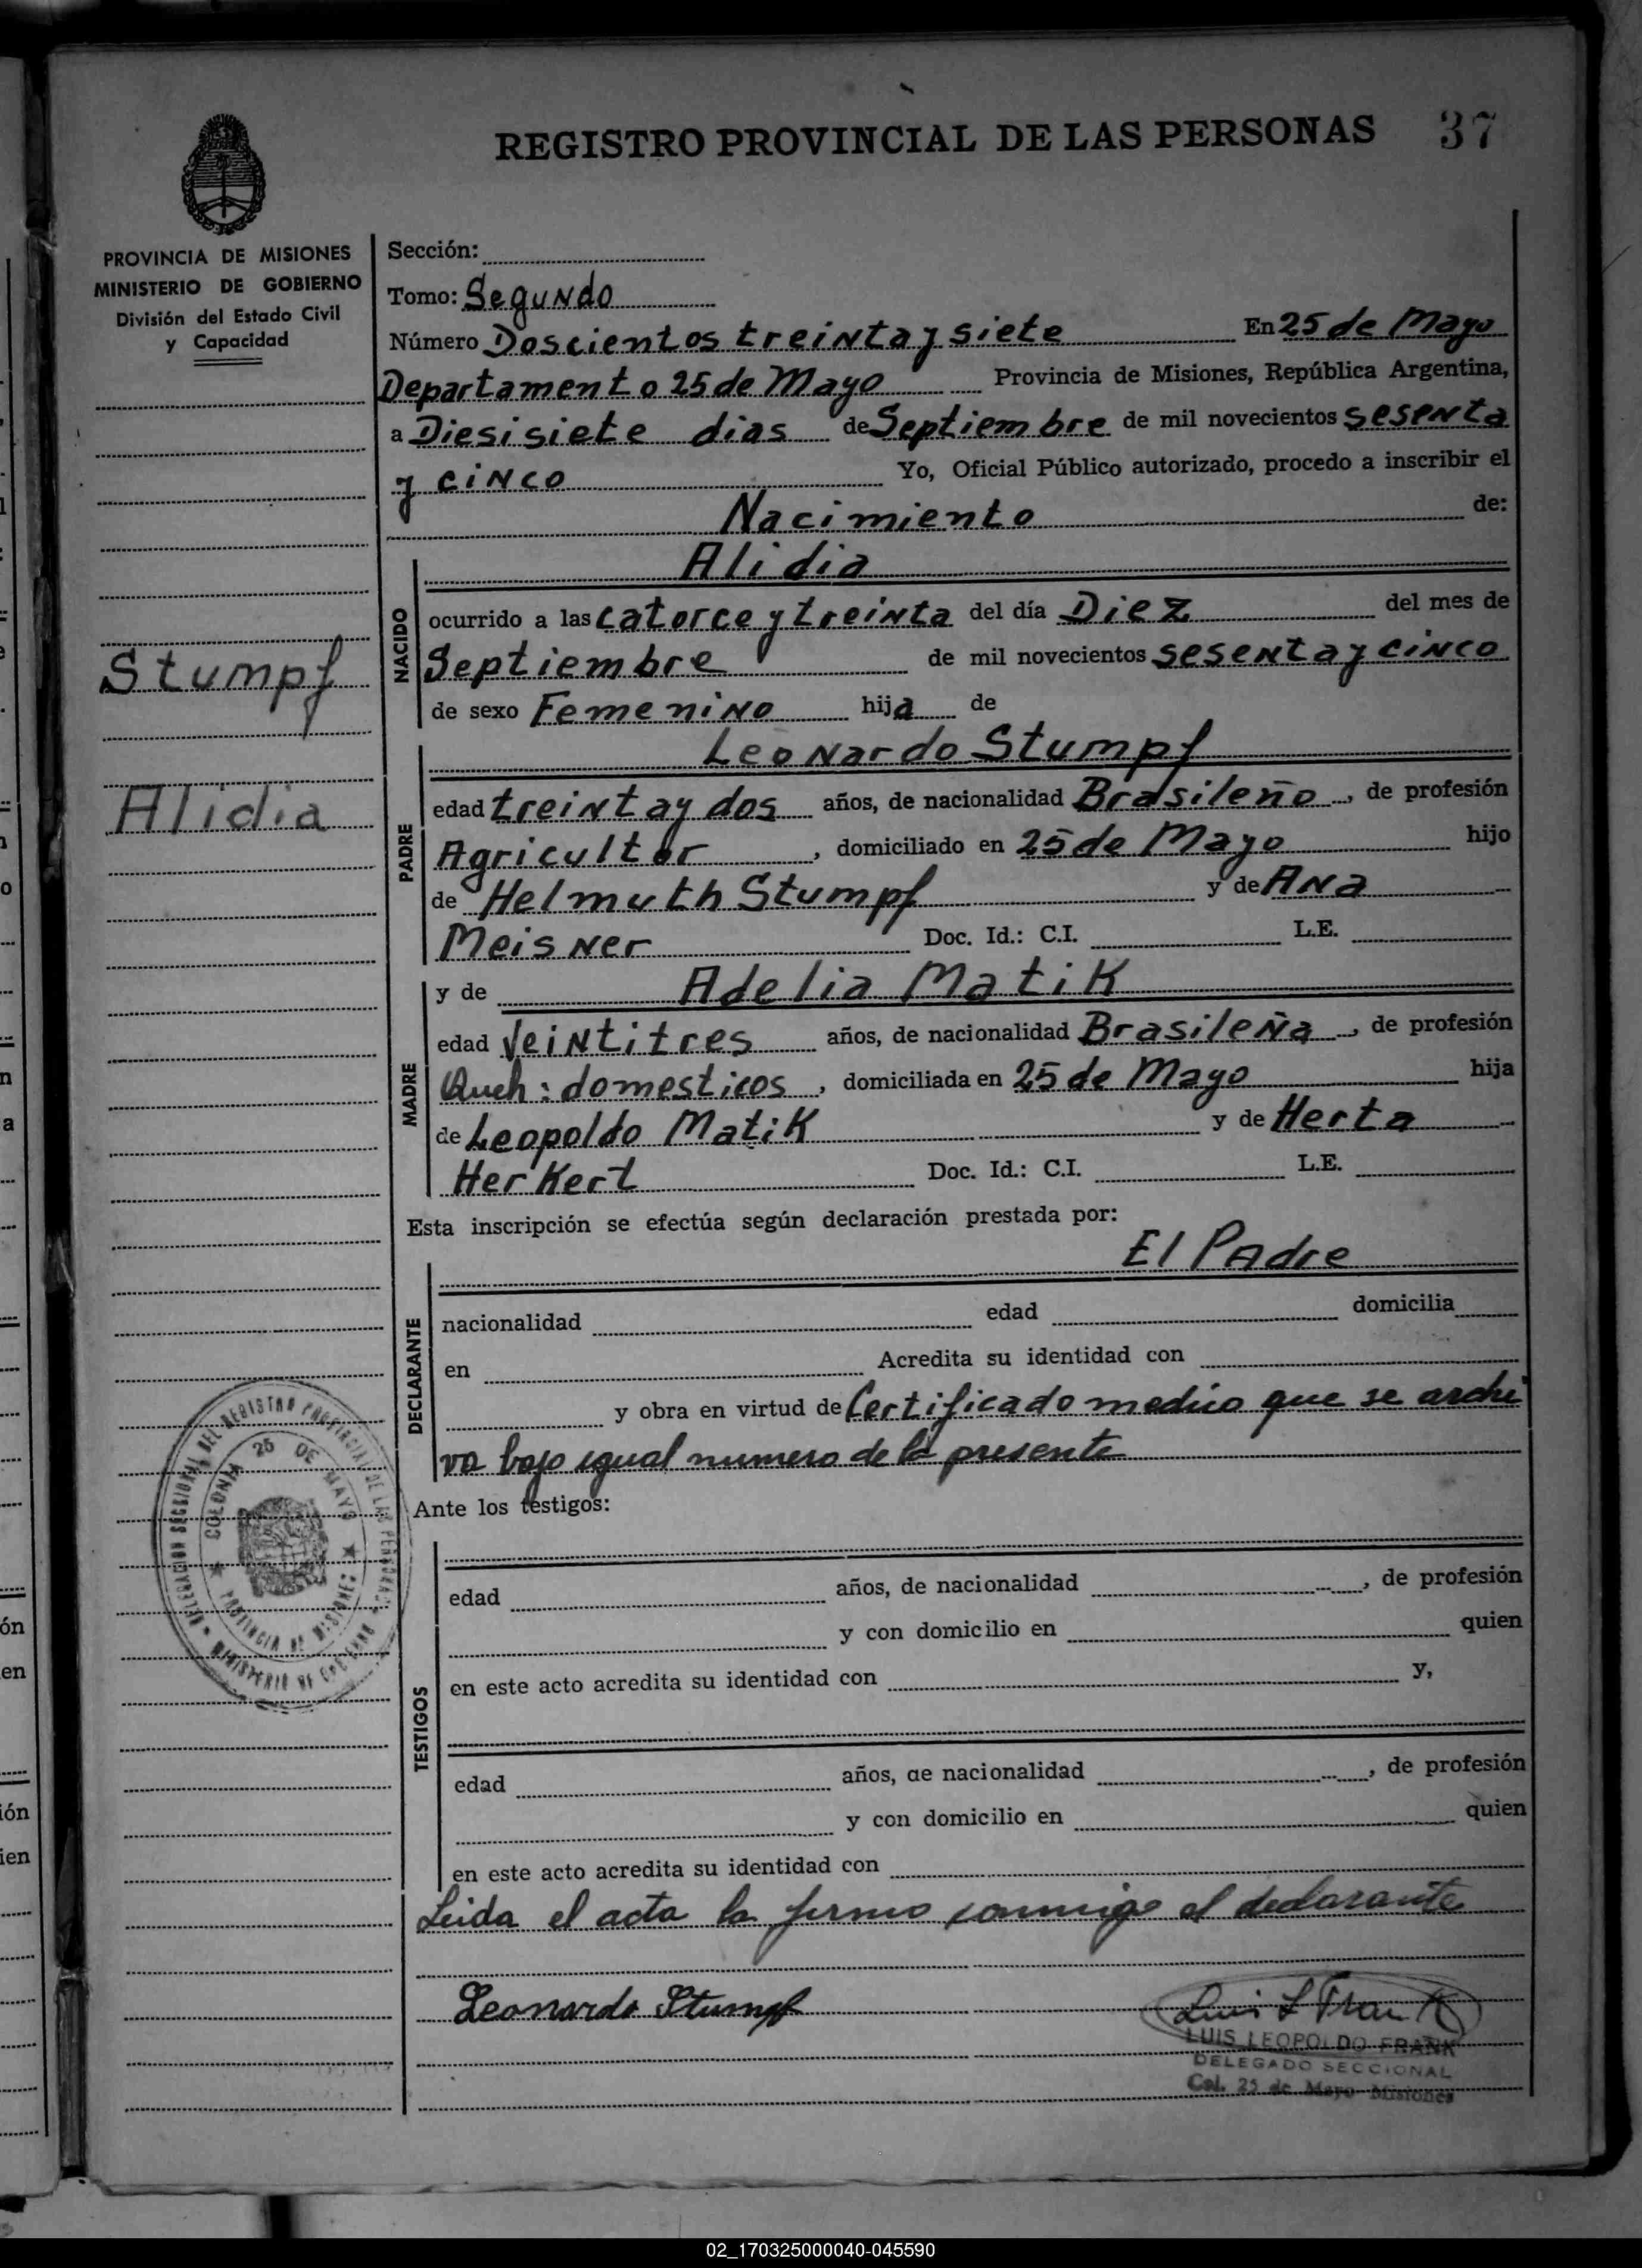 REGISTRO PROVINCIAL DE LAS PERSONAS 37
PROVINCIA DE MISIONES
MINISTERIO DE GOBIERNO
División del Estado Civil
y Capacidad
Stumpf
Alidia
Sección:
Tomo: Segundo
Número Doscientos treinta y siete En 25 de Mayo
Departamento 25 de Mayo Provincia de Misiones, República Argentina,
a Diesisiete dias de Septiembre de mil novecientos sesenta
y cinco Yo, Oficial Público autorizado, procedo a inscribir el
Nacimiento de:
Alidia
NACIDO
ocurrido a las catorce y treinta del día Diez del mes de
Septiembre de mil novecientos sesenta y cinco
de sexo Femenino hija de
Leonardo Stumpf
PADRE
edad treinta y dos años, de nacionalidad Brasileño, de profesión
Agricultor, domiciliado en 25 de Mayo hijo
de Helmuth Stumpf y de Ana
Meisner Doc. Id.: C.I. L.E.
y de Adelia Matik
MADRE
edad Veintitres años, de nacionalidad Brasileña, de profesión
Queh: domesticos, domiciliada en 25 de Mayo hija
de Leopoldo Matik y de Herta
Herkert Doc. Id.: C.I. L.E.
Esta inscripción se efectúa según declaración prestada por:
El Padre
DECLARANTE
nacionalidad edad domicilia
en Acredita su identidad con
y obra en virtud de Certificado medico que se archi
va bajo igual numero de la presente
Ante los testigos:
TESTIGOS
edad años, de nacionalidad , de profesión
y con domicilio en quien
en este acto acredita su identidad con y,
edad años, de nacionalidad , de profesión
y con domicilio en quien
en este acto acredita su identidad con
Leida el acta la firmo conmigo el declarante
Leonardo Stumpf
Luis L Frank
LUIS LEOPOLDO FRANK
DELEGADO SECCIONAL
Col. 25 de Mayo Misiones
DELEGACION SECCIONAL DEL REGISTRO PROVINCIAL DE LAS PERSONAS
MINISTERIO DE GOBIERNO
COLONIA 25 DE MAYO
PROVINCIA DE MISIONES
02_170325000040-045590